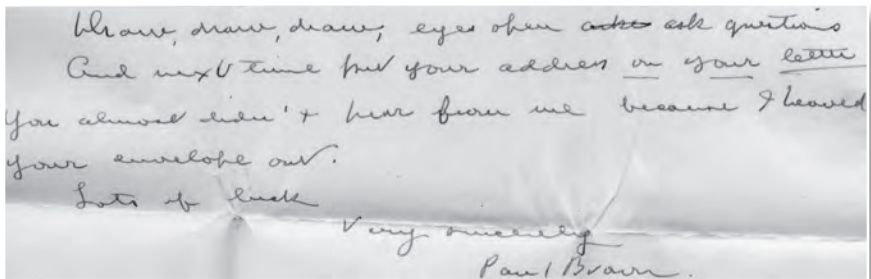 Draw, draw, draw, eyes open ask questions
And next time put your address on your letter
You almost didn't hear from me because I heaved
your envelope out.
Lots of luck
Very sincerely
Paul Brown.